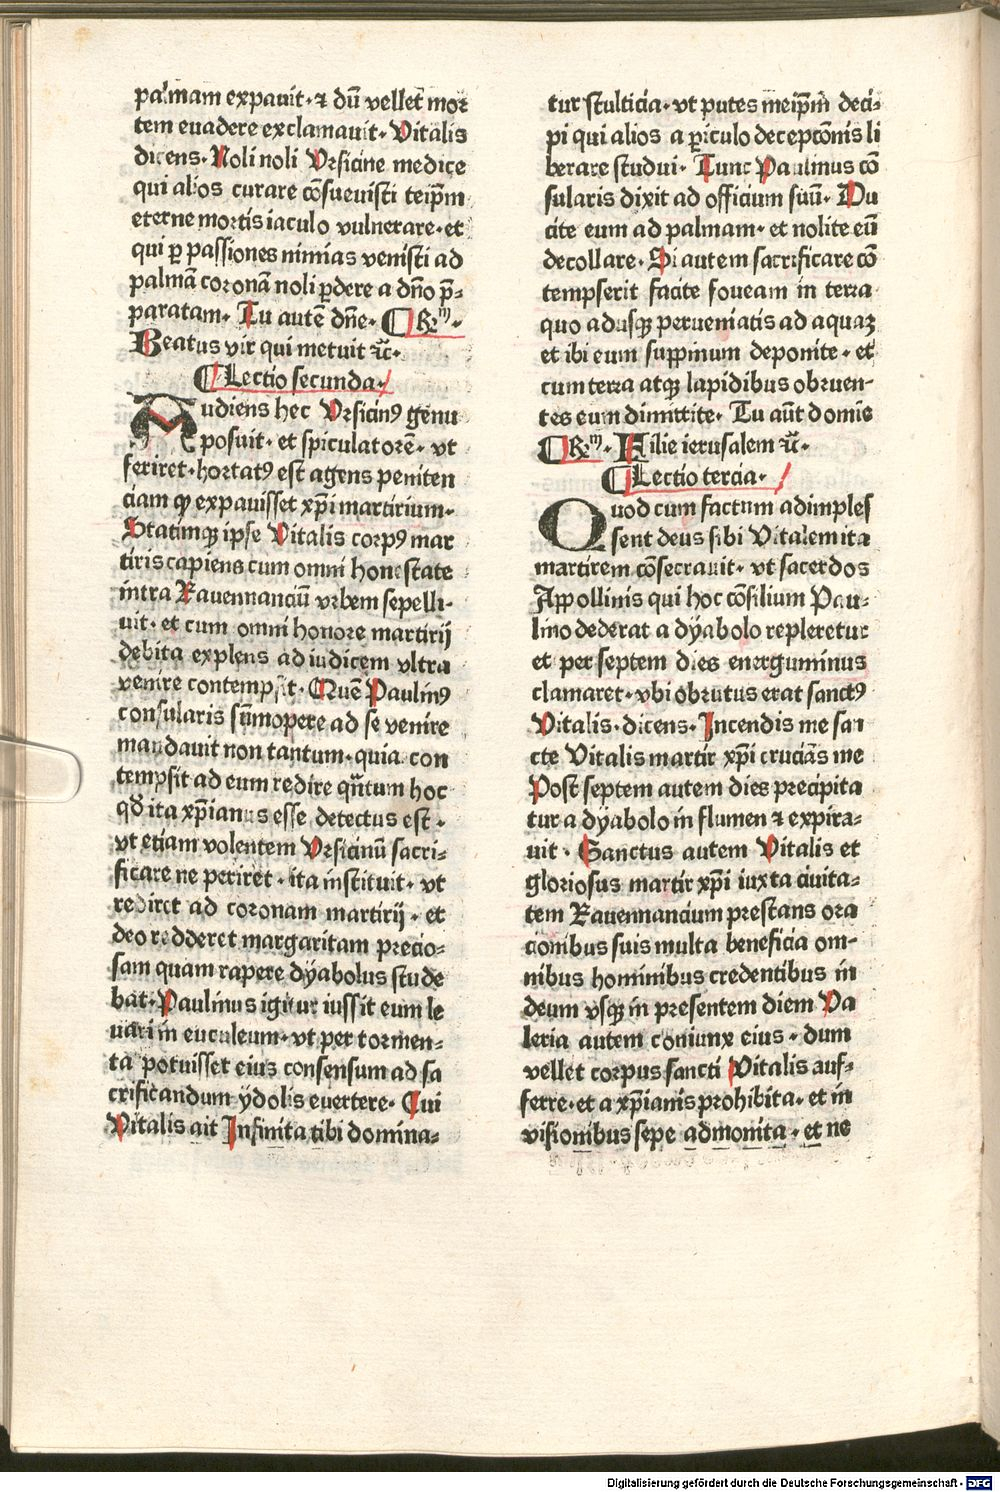 palmam expauit· ⁊ dū vellet mor
tem euadere exclamauit· Vitalis
dicens· Noli noli Vrsicine medice
qui alios curare cōsueuisti teip̄m
eterne mortis iaculo vulnerare· et
qui ꝑ passiones nimias venisti ad
palmā coronā noli ꝑdere a dn̄o p̄=
paratam· Tu autē dn̄e· ¶ Rm̄·
Beatus vir qui metuit ⁊c̄·
¶ Lectio secunda·
Audiens hec Vrsicinꝰ genu
posuit· et spiculatorē· vt
feriret· hortatꝰ est agens peniten
ciam ꝙ expauisset xp̄i martirium·
Statimqꝫ ipse Vitalis corpꝰ mar
tiris capiens cum omni honestate
intra Rauennanciū vrbem sepelli-
uit· et cum omni honore martirij
debita explens ad iudicem vltra
venire contempsit· Quē Paulinꝰ
consularis sūmopere ad se venire
mandauit non tantum· quia con
tempsit ad eum redire qn̄tum hoc
qđ ita xp̄ianus esse detectus est·
vt etiam volentem Vrsicinū sacri=
ficare ne periret· ita instituit· vt
rediret ad coronam martirij· et
deo redderet margaritam precio=
sam quam rapere dyabolus stude
bat· Paulinus igitur iussit eum le
uari in euculeum· vt per tormen=
ta potuisset eius consensum ad sa
crificandum ydolis euertere· Cui
Vitalis ait Infinita tibi domina=
tur stulticia· vt putes meip̄m deci=
pi qui alios a ꝑiculo decepcōnis li
berare studui· Tunc Paulinus cō
sularis dixit ad officium suū· Du
cite eum ad palmam· et nolite eū
decollare· Si autem sacrificare cō
tempserit facite foueam in terra
quo adusqꝫ perueniatis ad aquaꝫ
et ibi eum suppinum deponite· et
cum terra atqꝫ lapidibus obruen-
tes eum dimittite· Tu aūt domīe
¶ Rm̄· Filie ierusalem ⁊c̄·
¶ Lectio tercia·
Quod cum factum adimples
sent deus sibi Vitalem ita
martirem cōsecrauit· vt sacerdos
Appollinis qui hoc cōsilium Pau=
lino dederat a dyabolo repleretur
et per septem dies energuminus
clamaret· vbi obrutus erat sanctꝰ
Vitalis· dicens· Incendis me san
cte Vitalis martir xp̄i crucias me
Post septem autem dies precipita
tur a dyabolo in flumen ⁊ expira=
uit· Sanctus autem Vitalis et
gloriosus martir xp̄i iuxta ciuita=
tem Rauennancium prestans ora
cionibus suis multa beneficia om-
nibus hominibus credentibus in
deum vsqꝫ in presentem diem Va
leria autem coniunx eius· dum
vellet corpus sancti Vitalis auf=
ferre· et a xp̄ianis prohibita· et in
visionibus sepe admonita· et ne
Digitalisierung gefördert durch die Deutsche Forschungsgemeinschaft - DFG